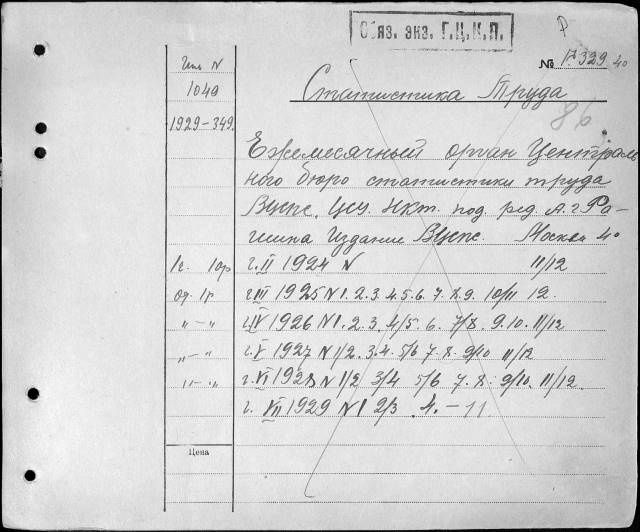 Обяз. экз. Г.Ц.К.П.
Р
№ 17.329 40
Инв N
1040
1929-349.
Статистика Труда
86
Ежемесячный орган Централь
ного бюро статистики труда
Вцспс, Цсу. Нкт. под. ред. А. Г Ра-
шина Издание Вцспс. Москва 4о
1г. 1ор г. II 1924 N 11/12
од. 1р г. III 1925 N 1. 2. 3. 4. 5. 6. 7. 8. 9. 10/11 12.
"-" г. IV 1926 N 1. 2. 3. 4/5. 6. 7/8. 9. 10. 11/12
"-" г. V 1927 N 1/2. 3. 4. 5/6 7. 8. 9/10 11/12
"-" г. VI 1928 N 1/2 3/4 5/6 7. 8. 9/10. 11/12.
г. VII 1929 N 1 2/3 4. - 11
Цена